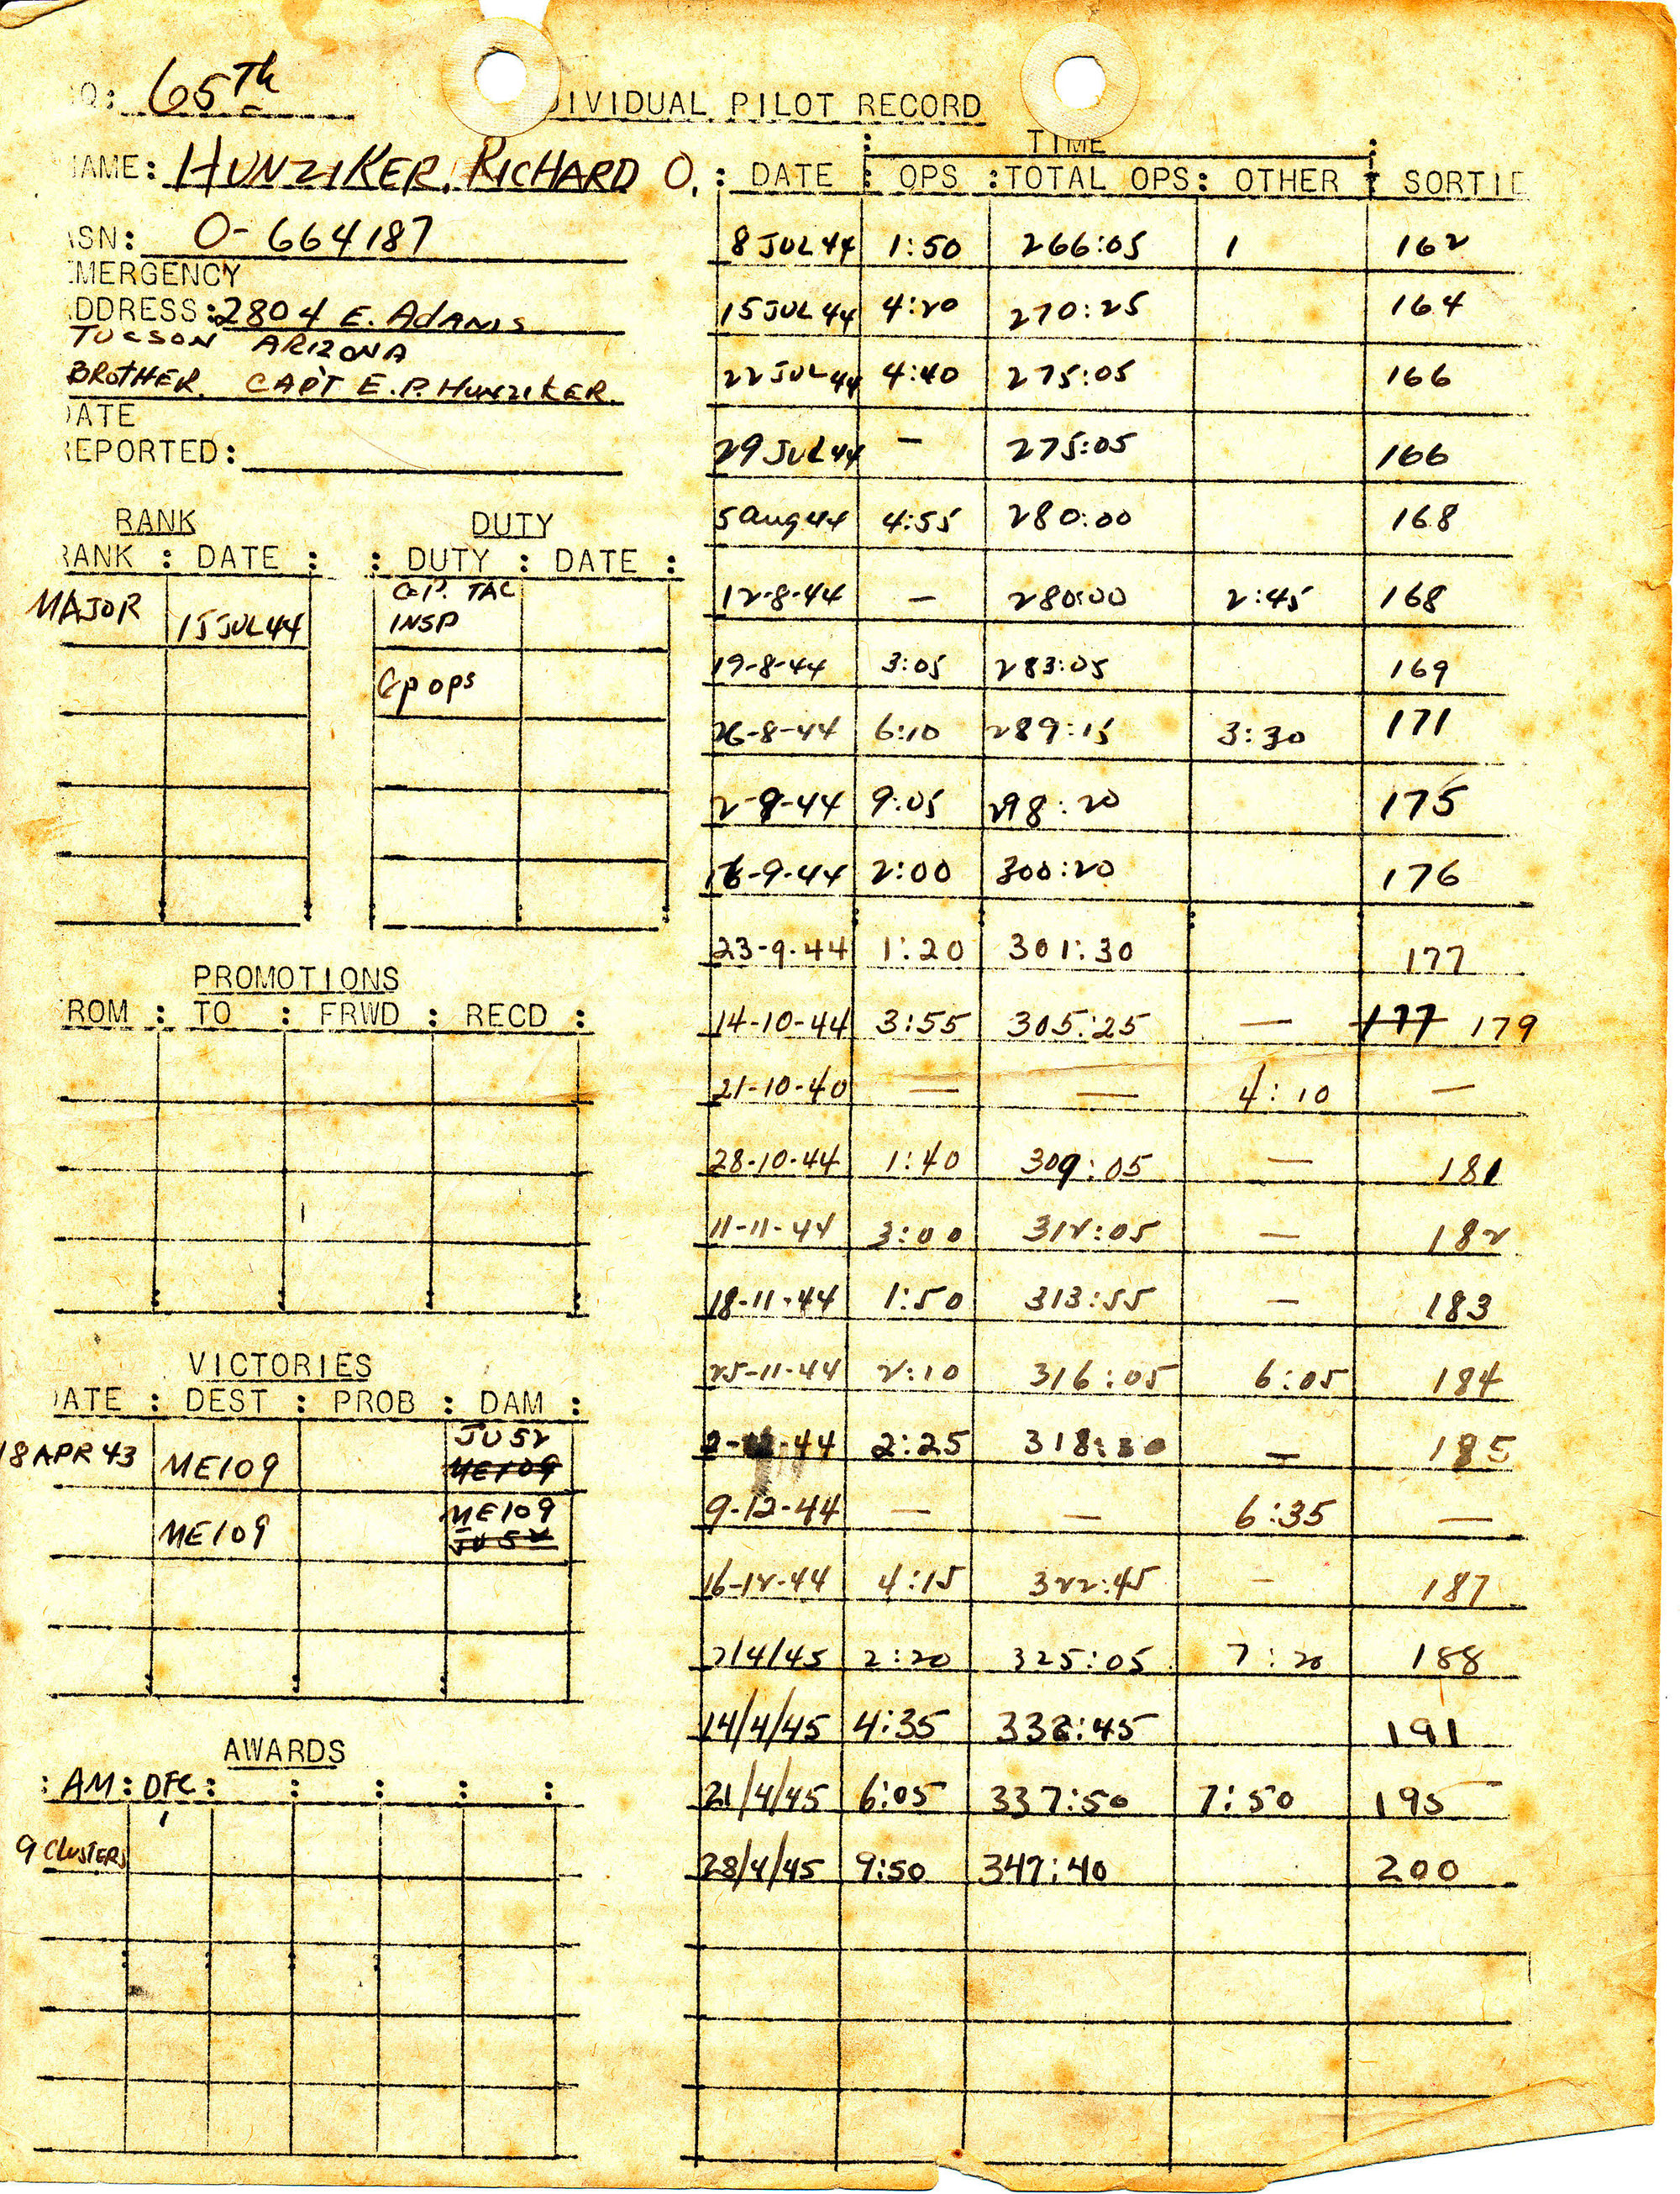 Q: 65Th
DIVIDUAL PILOT RECORD
AME: HUNZIKER, RICHARD O.
SN: O-664187
MERGENCY
DDRESS: 2804 E. ADAMS
TUCSON ARIZONA
BROTHER. CAPT E.P. HUNZIKER.
ATE
EPORTED:
RANK
RANK : DATE :
MAJOR 15 JUL 44
DUTY
: DUTY : DATE :
GP. TAC
INSP
Gp ops
PROMOTIONS
ROM : TO : FRWD : RECD :
VICTORIES
ATE : DEST : PROB : DAM :
18 APR 43 ME109 JU52
ME109
ME109 ME109
JU52
AWARDS
: AM : DFC : : : : :
1
9 CLUSTERS
TIME
: DATE : OPS : TOTAL OPS : OTHER : SORTIE
8 JUL 44 1:50 266:05 1 162
15 JUL 44 4:20 270:25 164
22 JUL 44 4:40 275:05 166
29 JUL 44 — 275:05 166
5 aug 44 4:55 280:00 168
12-8-44 — 280:00 2:45 168
19-8-44 3:05 283:05 169
26-8-44 6:10 289:15 3:30 171
2-9-44 9:05 298:20 175
16-9-44 2:00 300:20 176
23-9-44 1:20 301:30 177
14-10-44 3:55 305:25 — 177 179
21-10-40 — — 4:10 —
28-10-44 1:40 309:05 — 181
11-11-44 3:00 312:05 — 182
18-11-44 1:50 313:55 — 183
25-11-44 2:10 316:05 6:05 184
44 2:25 318:30 — 185
9-12-44 — — 6:35 —
16-12-44 4:15 322:45 — 187
7/4/45 2:20 325:05 7:20 188
14/4/45 4:35 45 191
21/4/45 6:05 337:50 7:50 195
28/4/45 9:50 347:40 200